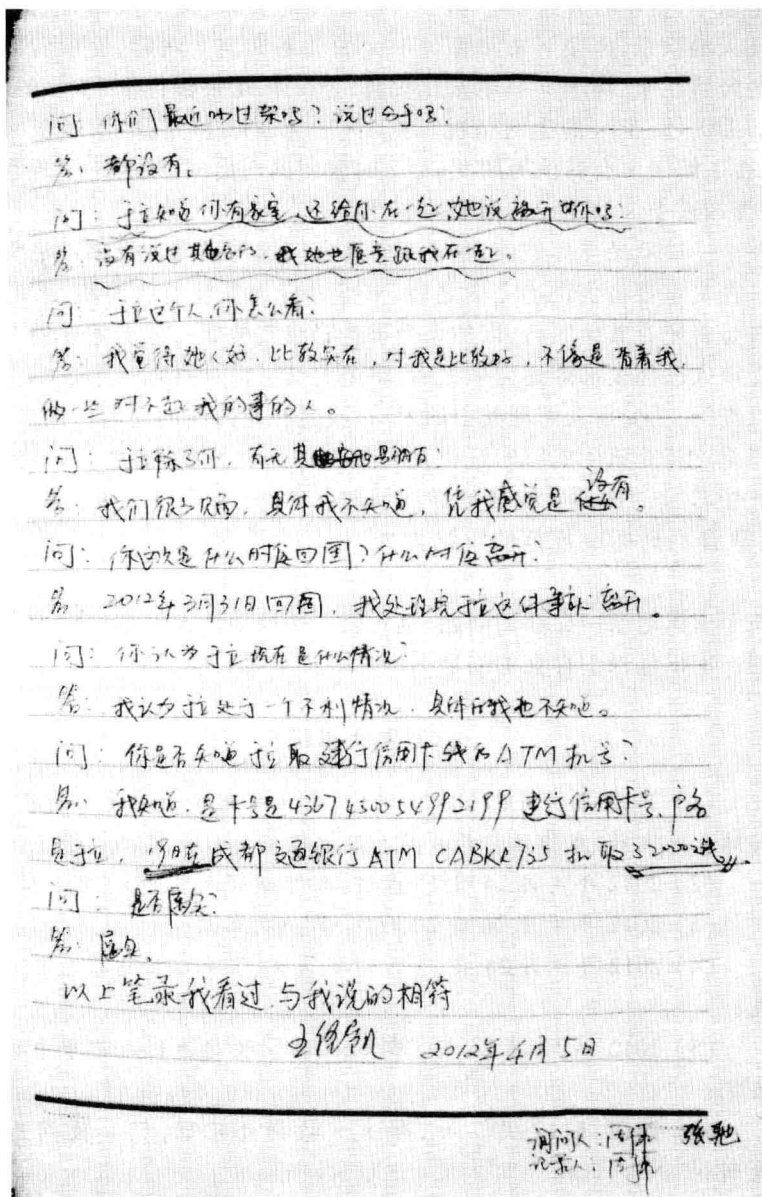 问: 你们最近吵过架吗? 说过分手吗?
答: 都没有。
问: 于拉知道你有家室, 还给你在一起, 她说离开你吗?
答: 没有说过其, 我她也愿意跟我在一起。
问: 于拉这个人, 你怎么看?
答: 我觉得她人好, 比较实在, 对我是比较好, 不像是背着我,
做一些对不起我的事的人。
问: 于拉除了你, 有无其男朋友?
答: 我们很少见面, 具体我不知道, 凭我感觉是没有。
问: 你这次是什么时候回国? 什么时候离开?
答: 2012年3月31日回国, 我处理完于拉这件事才离开。
问: 你认为于拉现在是什么情况?
答: 我认为于拉处于一个不利情况, 具体的我也不知道。
问: 你是否知道于拉取建行信用卡钱的ATM机号?
答: 我知道, 是卡号是4367450054992199建行信用卡号, 户名
是于拉, 9日在成都交通银行ATM CABKK735机取32000钱。
问: 是否属实?
答: 属实。
以上笔录我看过, 与我说的相符
2012年4月5日
询问人: 张驰
记录人: